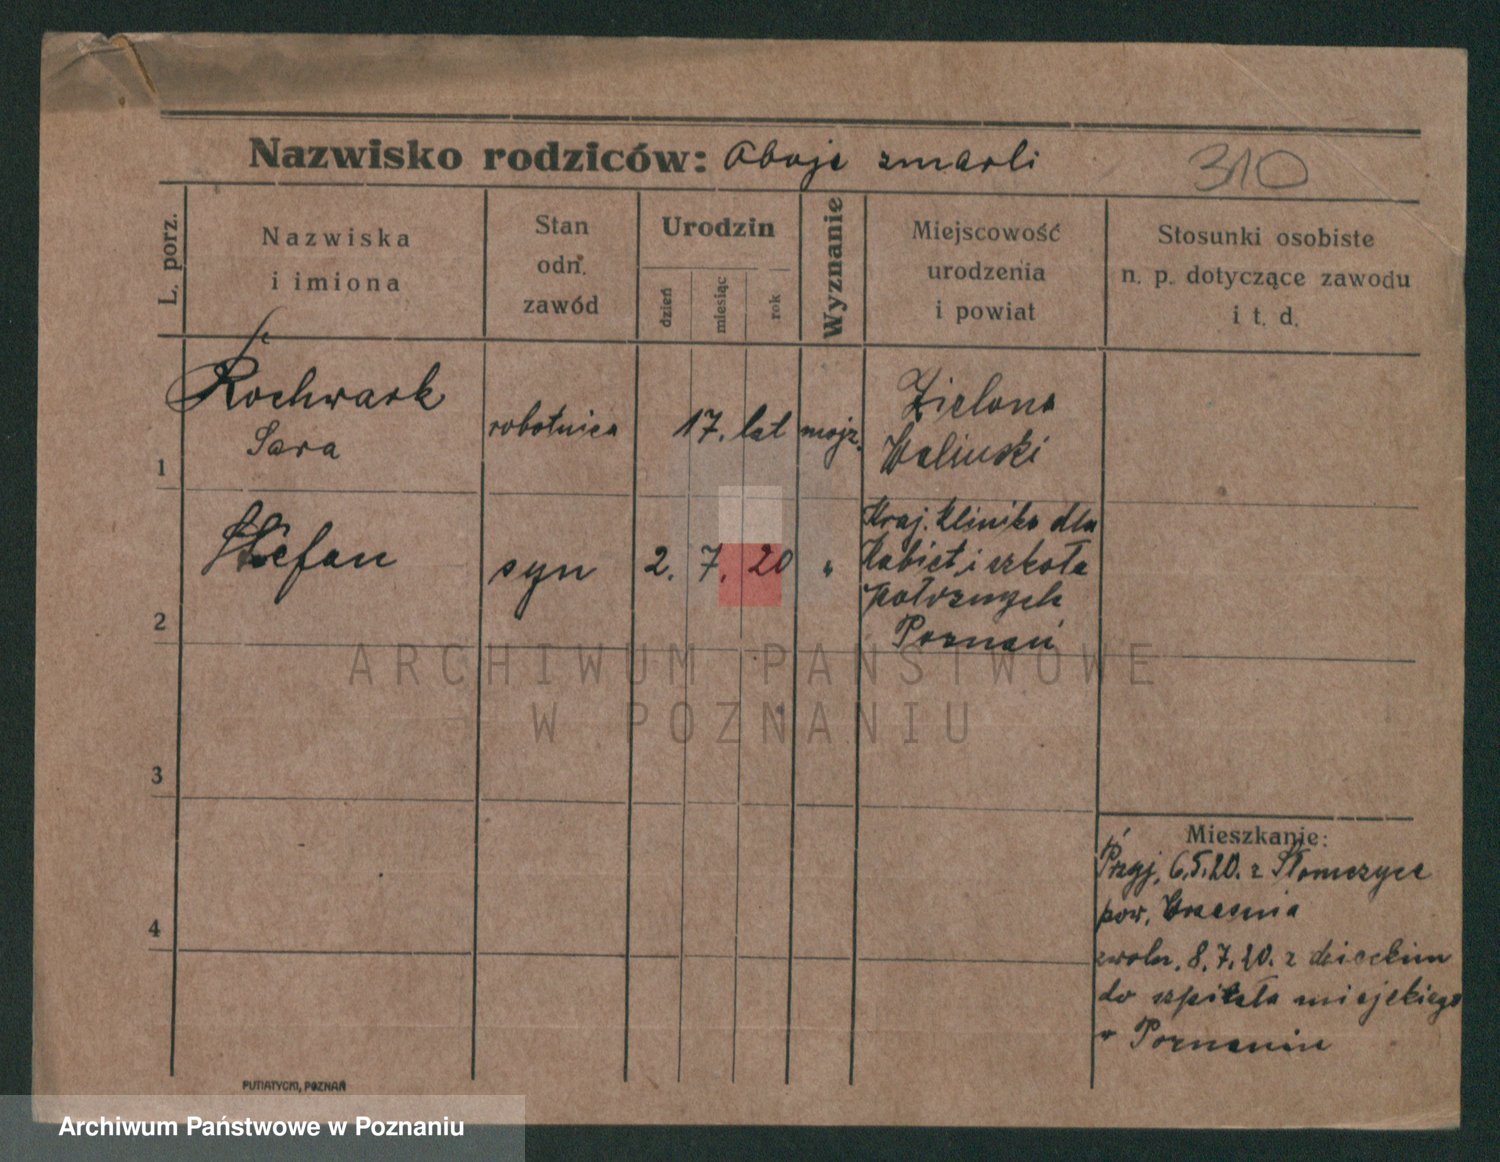 Nazwisko rodziców: Oboje zmarli
310
L. porz.
Nazwiska
i imiona
Stan
odn.
zawód
Urodzin
dzień
miesiąc
rok
Wyznanie
Miejscowość
urodzenia
i powiat
Stosunki osobiste
n. p. dotyczące zawodu
i t. d.
1
Rochwark
Sara
robotnica
17. lat
mojż.
Zielona
Waliński
2
Stefan
syn
2. 7. 20
"
Kraj. Klinika dla
Kobiet i szkoła
położnych
Poznań
3
4
Mieszkanie:
Przyj. 6.5.20. z Słomczyce
pow. Września
zwoln. 8.7.20. z dzieckim
do szpitala miejskiego
w Poznaniu
PUTIATYCKI, POZNAŃ
ARCHIWUM PAŃSTWOWE
W POZNANIU
Archiwum Państwowe w Poznaniu